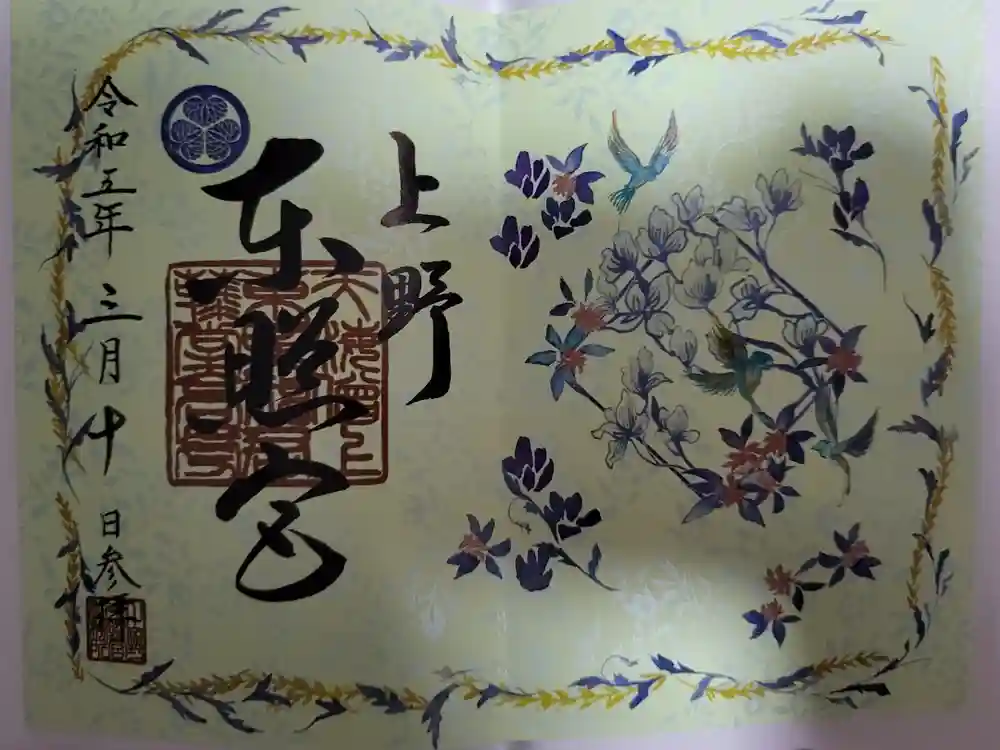 上野
東照宮
令和五年 三月 十 日参拝